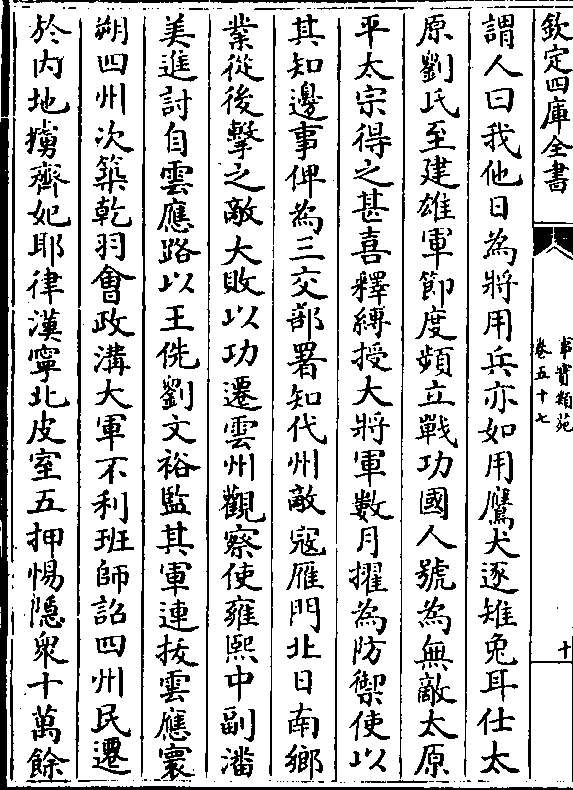 欽定四庫全書
事實類苑
卷五十七
十
謂人曰我他日為將用兵亦如用鷹犬逐雉兔耳仕太
原劉氏至建雄軍節度頻立戰功國人號為無敵太原
平太宗得之甚喜釋縛授大將軍數月擢為防禦使以
其知邊事俾為三交部署知代州敵寇雁門北日南鄉
業從後擊之敵大敗以功遷雲州觀察使雍熙中副潘
美進討自雲應路以王侁劉文裕監其軍連拔雲應寰
朔四州次築乾羽會政溝大軍不利班師詔四州民遷
於内地獲齊妃耶律漢寧北皮室五押惕隐衆十萬餘